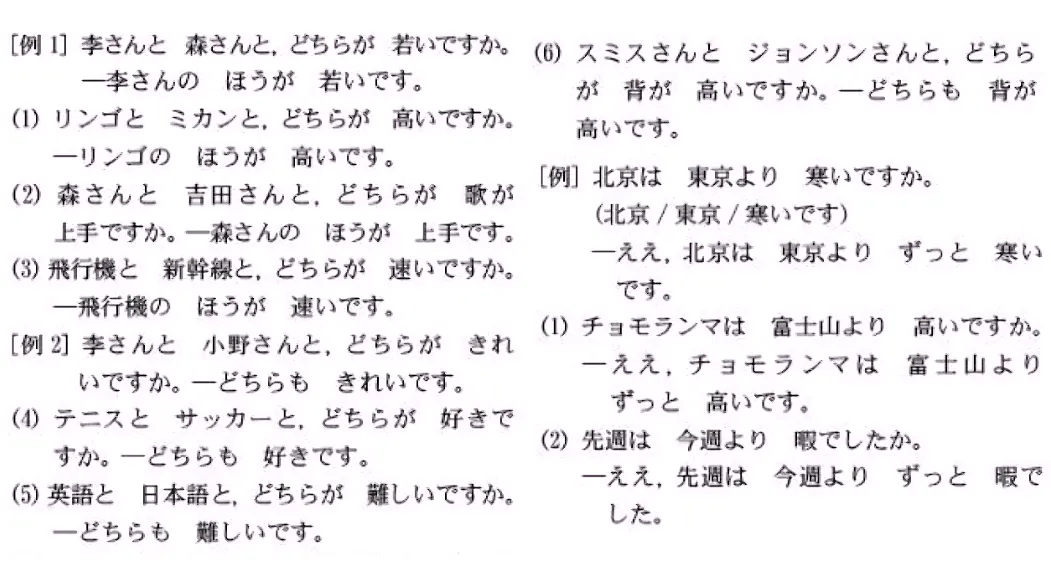 [例1] 李さんと 森さんと, どちらが 若いですか。
―李さんの ほうが 若いです。
(1) リンゴと ミカンと, どちらが 高いですか。
―リンゴの ほうが 高いです。
(2) 森さんと 吉田さんと, どちらが 歌が
上手ですか。―森さんの ほうが 上手です。
(3) 飛行機と 新幹線と, どちらが 速いですか。
―飛行機の ほうが 速いです。
[例2] 李さんと 小野さんと, どちらが きれ
いですか。―どちらも きれいです。
(4) テニスと サッカーと, どちらが 好きで
すか。―どちらも 好きです。
(5) 英語と 日本語と, どちらが 難しいですか。
―どちらも 難しいです。
(6) スミスさんと ジョンソンさんと, どちら
が 背が 高いですか。―どちらも 背が
高いです。
[例] 北京は 東京より 寒いですか。
(北京/東京/寒いです)
―ええ, 北京は 東京より ずっと 寒い
です。
(1) チョモランマは 富士山より 高いですか。
―ええ, チョモランマは 富士山より
ずっと 高いです。
(2) 先週は 今週より 暇でしたか。
―ええ, 先週は 今週より ずっと 暇で
した。